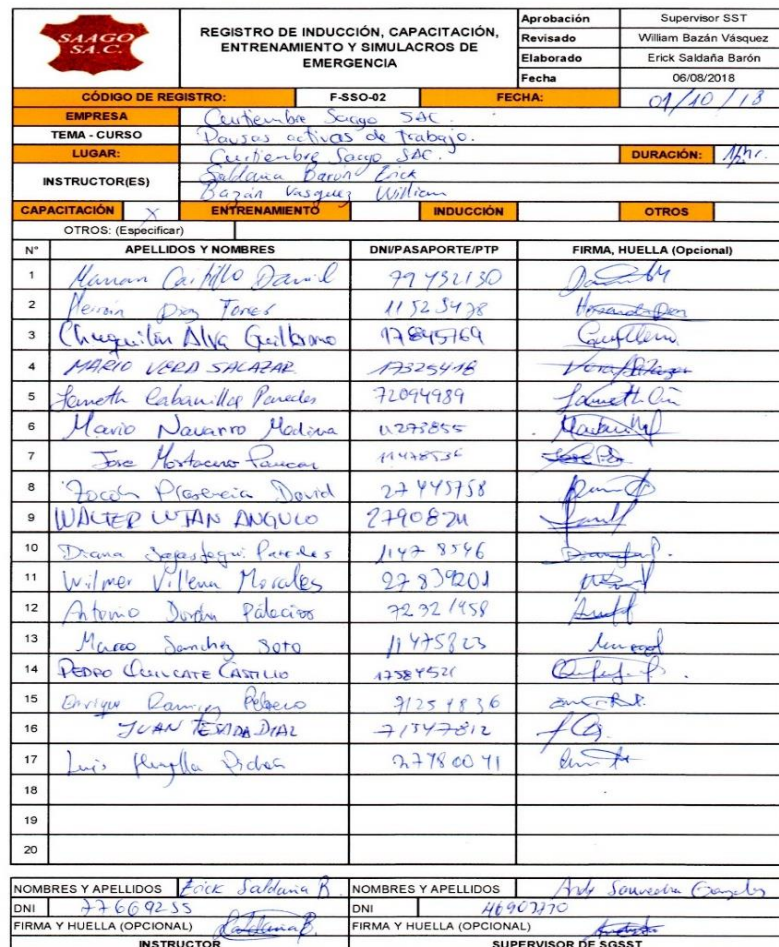 SAAGO
S.A.C.
REGISTRO DE INDUCCIÓN, CAPACITACIÓN,
ENTRENAMIENTO Y SIMULACROS DE
EMERGENCIA
Aprobación Supervisor SST
Revisado William Bazán Vásquez
Elaborado Erick Saldaña Barón
Fecha 06/08/2018
CÓDIGO DE REGISTRO: F-SSO-02 FECHA: 01/10/18
EMPRESA Curtiembre Saago SAC.
TEMA - CURSO Pausas activas de trabajo.
LUGAR: Curtiembre Saago SAC. DURACIÓN: 1/2hr.
INSTRUCTOR(ES) Saldaña Baron Erick
Bazán Vasquez William
CAPACITACIÓN X ENTRENAMIENTO INDUCCIÓN OTROS
OTROS: (Especificar)
N° APELLIDOS Y NOMBRES DNI/PASAPORTE/PTP FIRMA, HUELLA (Opcional)
1 Castillo David
2 Diaz Torres
3 Chuquilin Alva Guillermo 17845769
4 MARIO VERA SALAZAR 17325418
5 Janneth Cabanillas Paredes 72094989
6 Mario Navarro Medina 11273855
7 Jose Mostacero Paucar
8 Plasencia David 27445758
9 WALTER LUJAN ANGULO
10 Diana Paredes 11478546
11 Wilmer Villena Morales 27839201
12 Antonio Palacios 72321958
13 Marco Sanchez Soto 11475823
14 PEDRO QUILCATE CASTILLO 17584521
15 Enrique Ramirez 71254836
16 JUAN TEJADA DIAZ 71547812
17 Luis 27780071
18
19
20
NOMBRES Y APELLIDOS Erick Saldaña B. NOMBRES Y APELLIDOS Saavedra
DNI 77669255 DNI
FIRMA Y HUELLA (OPCIONAL) FIRMA Y HUELLA (OPCIONAL)
INSTRUCTOR SUPERVISOR DE SGSST